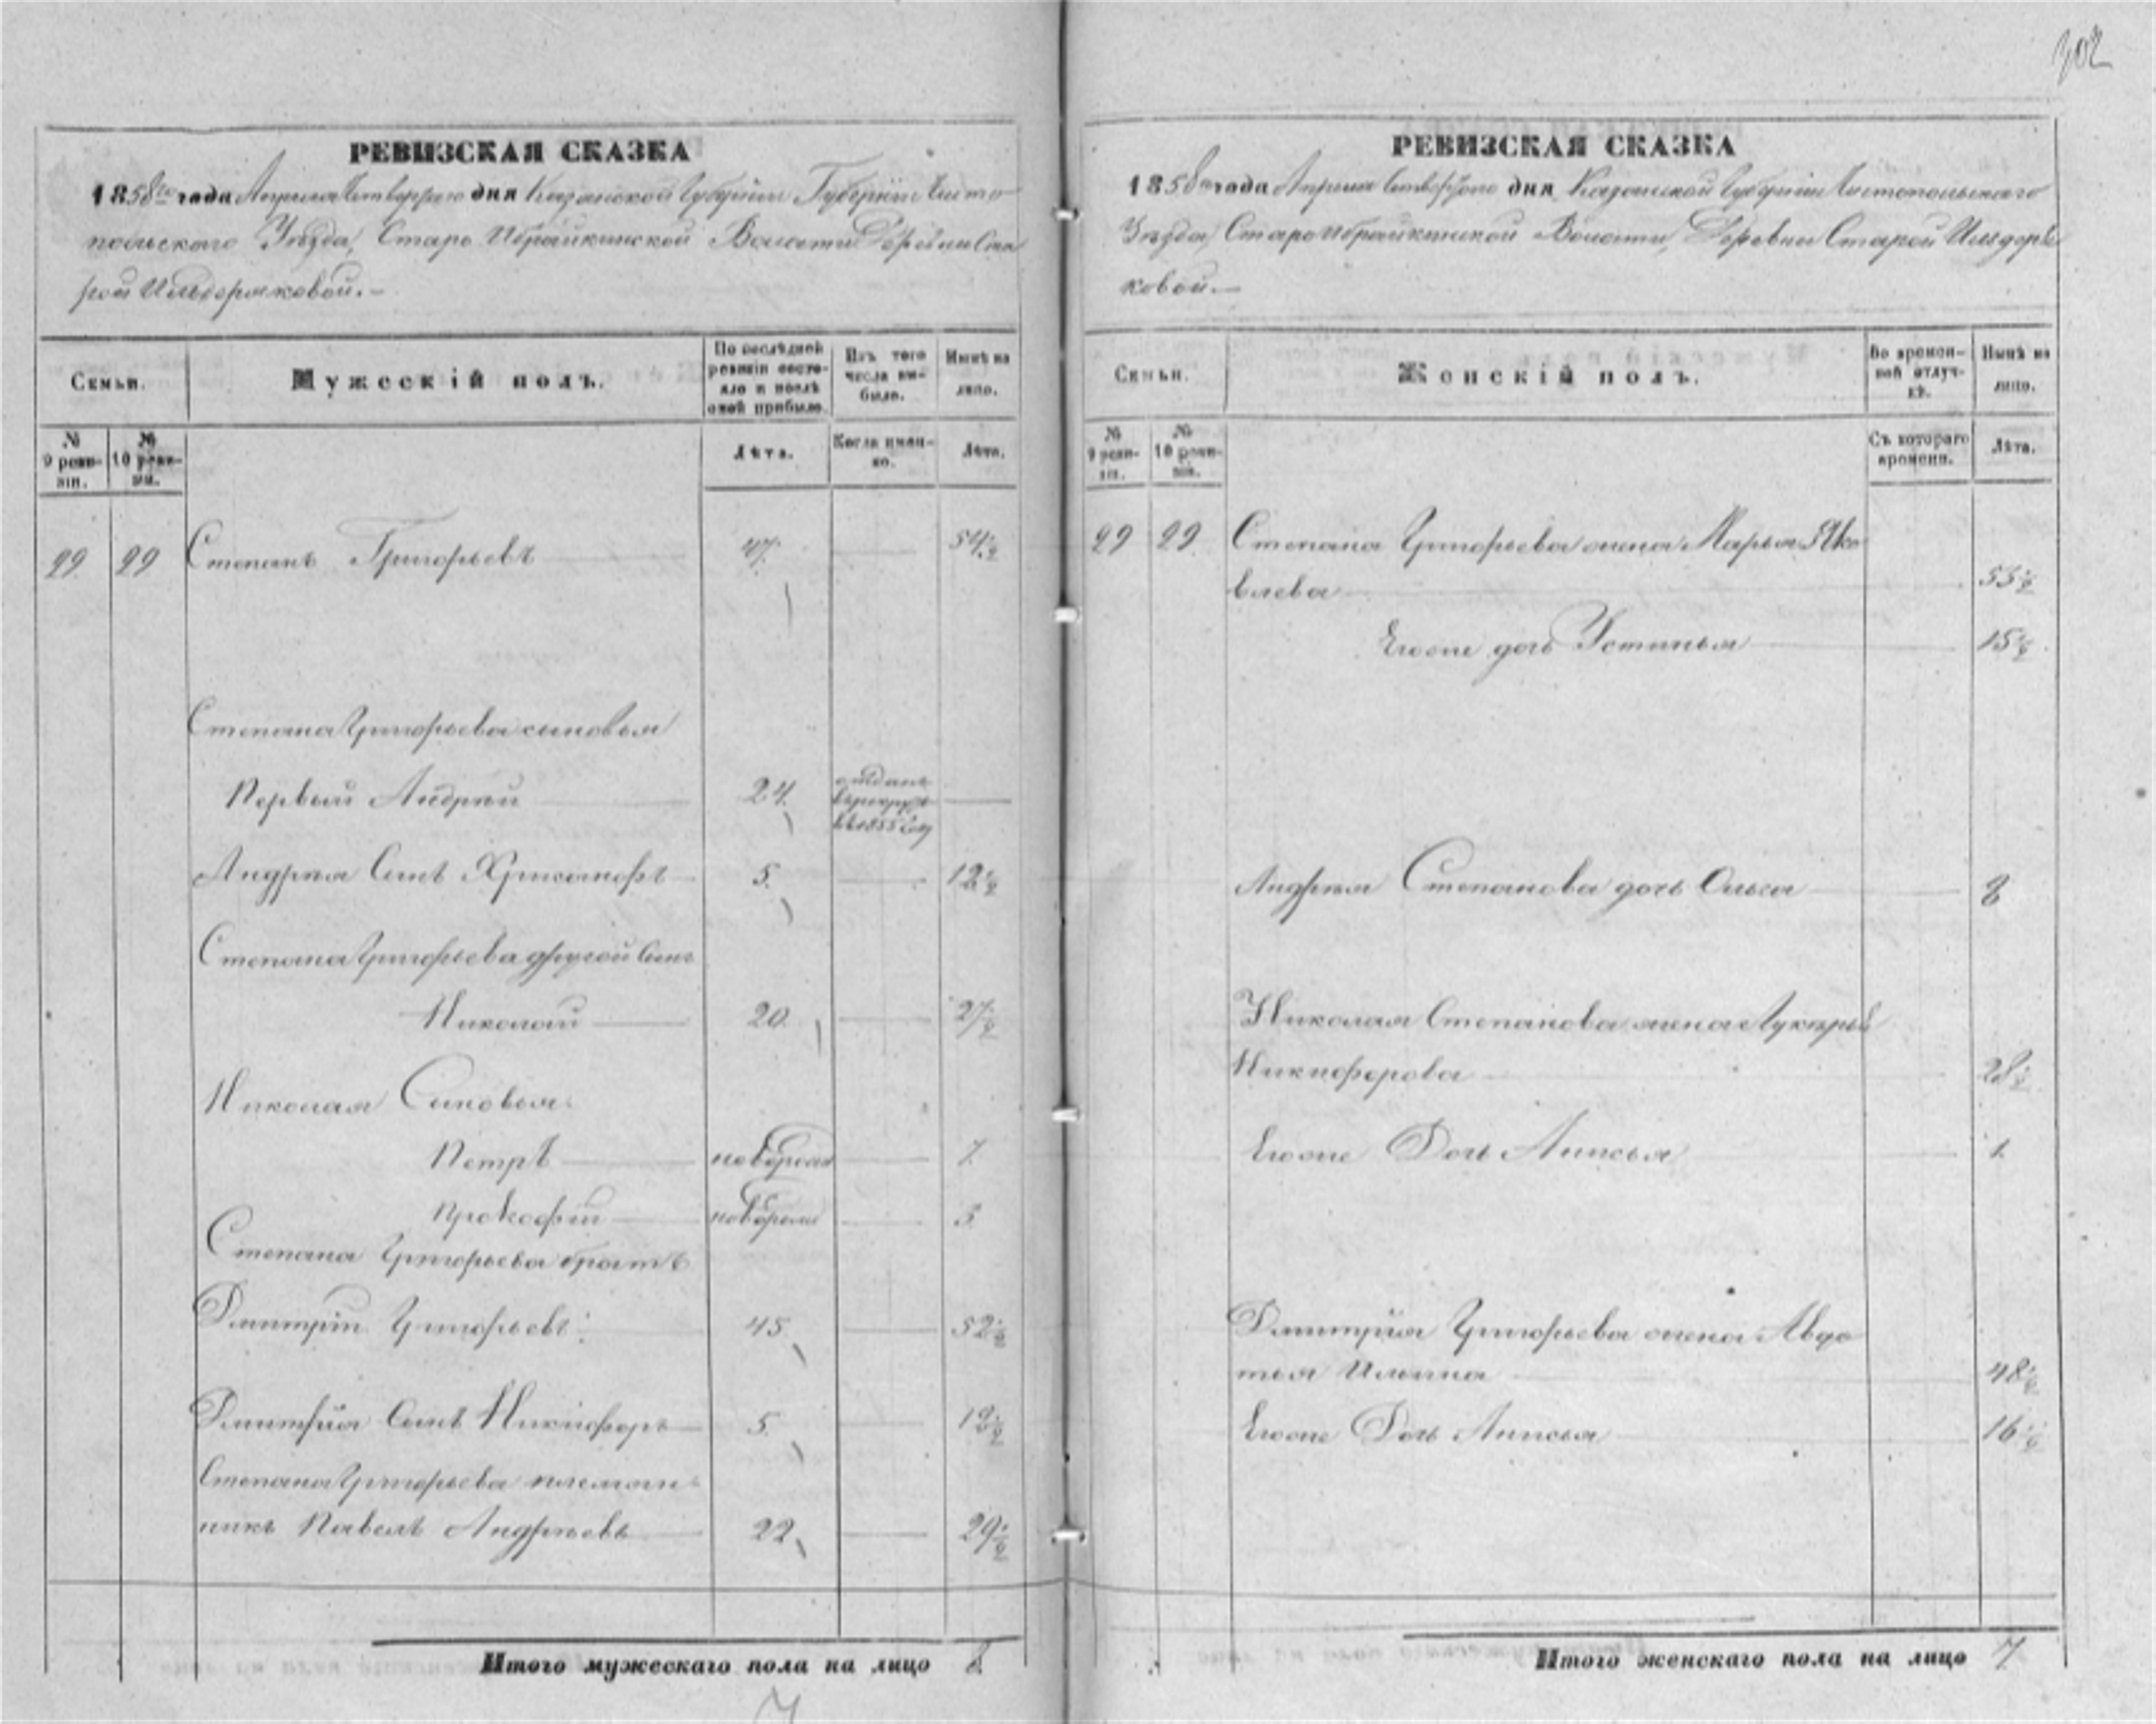 302
РЕВИЗСКАЯ СКАЗКА
1858го года Апреля Четвертаго дня Казанской Губернiи Губернiи Чисто
польскаго Уѣзда, Старо Ибрайкинской Волости Деревни Ста
рой Ильдеряковой.—
Семьи.
Мужескiй полъ.
По послѣдней
ревизiи состо-
яло и послѣ
оной прибыло.
Изъ того
числа вы-
было.
Нынѣ на
лицо.
№
9 реви-
зiи.
№
10 реви-
зiи.
Лѣта.
Когда имен-
но.
Лѣта.
29. 29 Степанъ Григорьевъ 47. 54 1/2
Степана Григорьева сыновья
Первый Андрей 24.
отданъ
въ рекруты
въ 1855 году
Андрея Сынъ Хрисанфъ 5. 12 1/2
Степана Григорьева другой Сынъ
Николай 20. 27 1/2
Николая Сыновья
Петръ новорож 7.
Прокофiй новорож 3.
Степана Григорьева братъ
Дмитрiй Григорьевъ 45. 52 1/2
Дмитрiя Сынъ Никифоръ 5. 12 1/2
Степана Григорьева племян-
никъ Павелъ Андреевъ 22 29 1/2
Итого мужескаго пола на лицо 8.
7
РЕВИЗСКАЯ СКАЗКА
1858го года Апреля Четвертаго дня Казанской Губернiи Чистопольскаго
Уѣзда, Старо Ибрайкинской Волости, Деревни Старой Ильдеря
ковой.—
Семьи.
Женскiй полъ.
Во времен-
ной отлуч-
кѣ.
Нынѣ на
лицо.
№
9 реви-
зiи.
№
10 реви-
зiи.
Съ котораго
времени.
Лѣта.
29 29. Степана Григорьева жена Марья Яко
влева 53 1/2
Егоже дочь Устинья 15 1/2
Андрея Степанова дочь Ольга 8
Николая Степанова жена Лукерья
Никифорова 28 1/2
Егоже Дочь Анисья 1.
Дмитрiя Григорьева жена Авдо
тья Ильина 48 1/2
Егоже Дочь Анисья 16 1/2
Итого женскаго пола на лицо 7